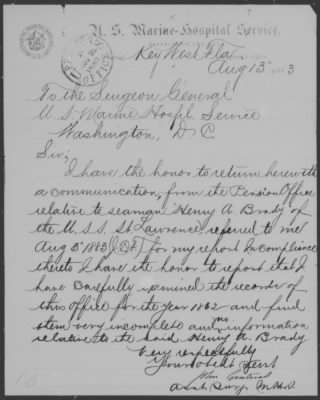 U. S. Marine-Hospital Service.
Key West Fla
Aug 13" 3
To the Surgeon General
U S Marine Hosptl Service
Washington, D C
Sir;
I have the honor to return herewith
a communication, from the Pension Office
relative to seaman Henry A. Brady of
the U.S.S. St Lawrence referred to me
Aug 3" 1883 for my report In compliance
thereto I have the honor to report that I
have carefully examined the records of
this Office for the year 1862 and find
them very incomplete and no information
relative to the said Henry A. Brady.
Very respectfully
Your Obedt Servt
Asst Surg. M.H.S.